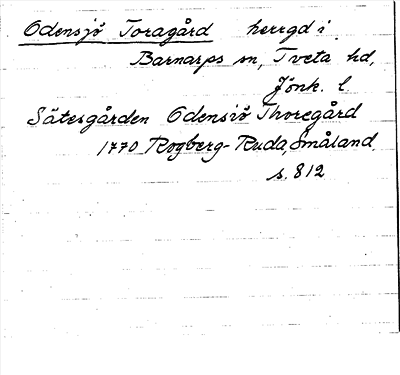 Odensjö Toragård herrgd i
Barnarps sn, Tveta hd,
Jönk. l.
Sätesgården Odensiö Thoregård
1770 Rogberg-Ruda, Småland.
s. 812